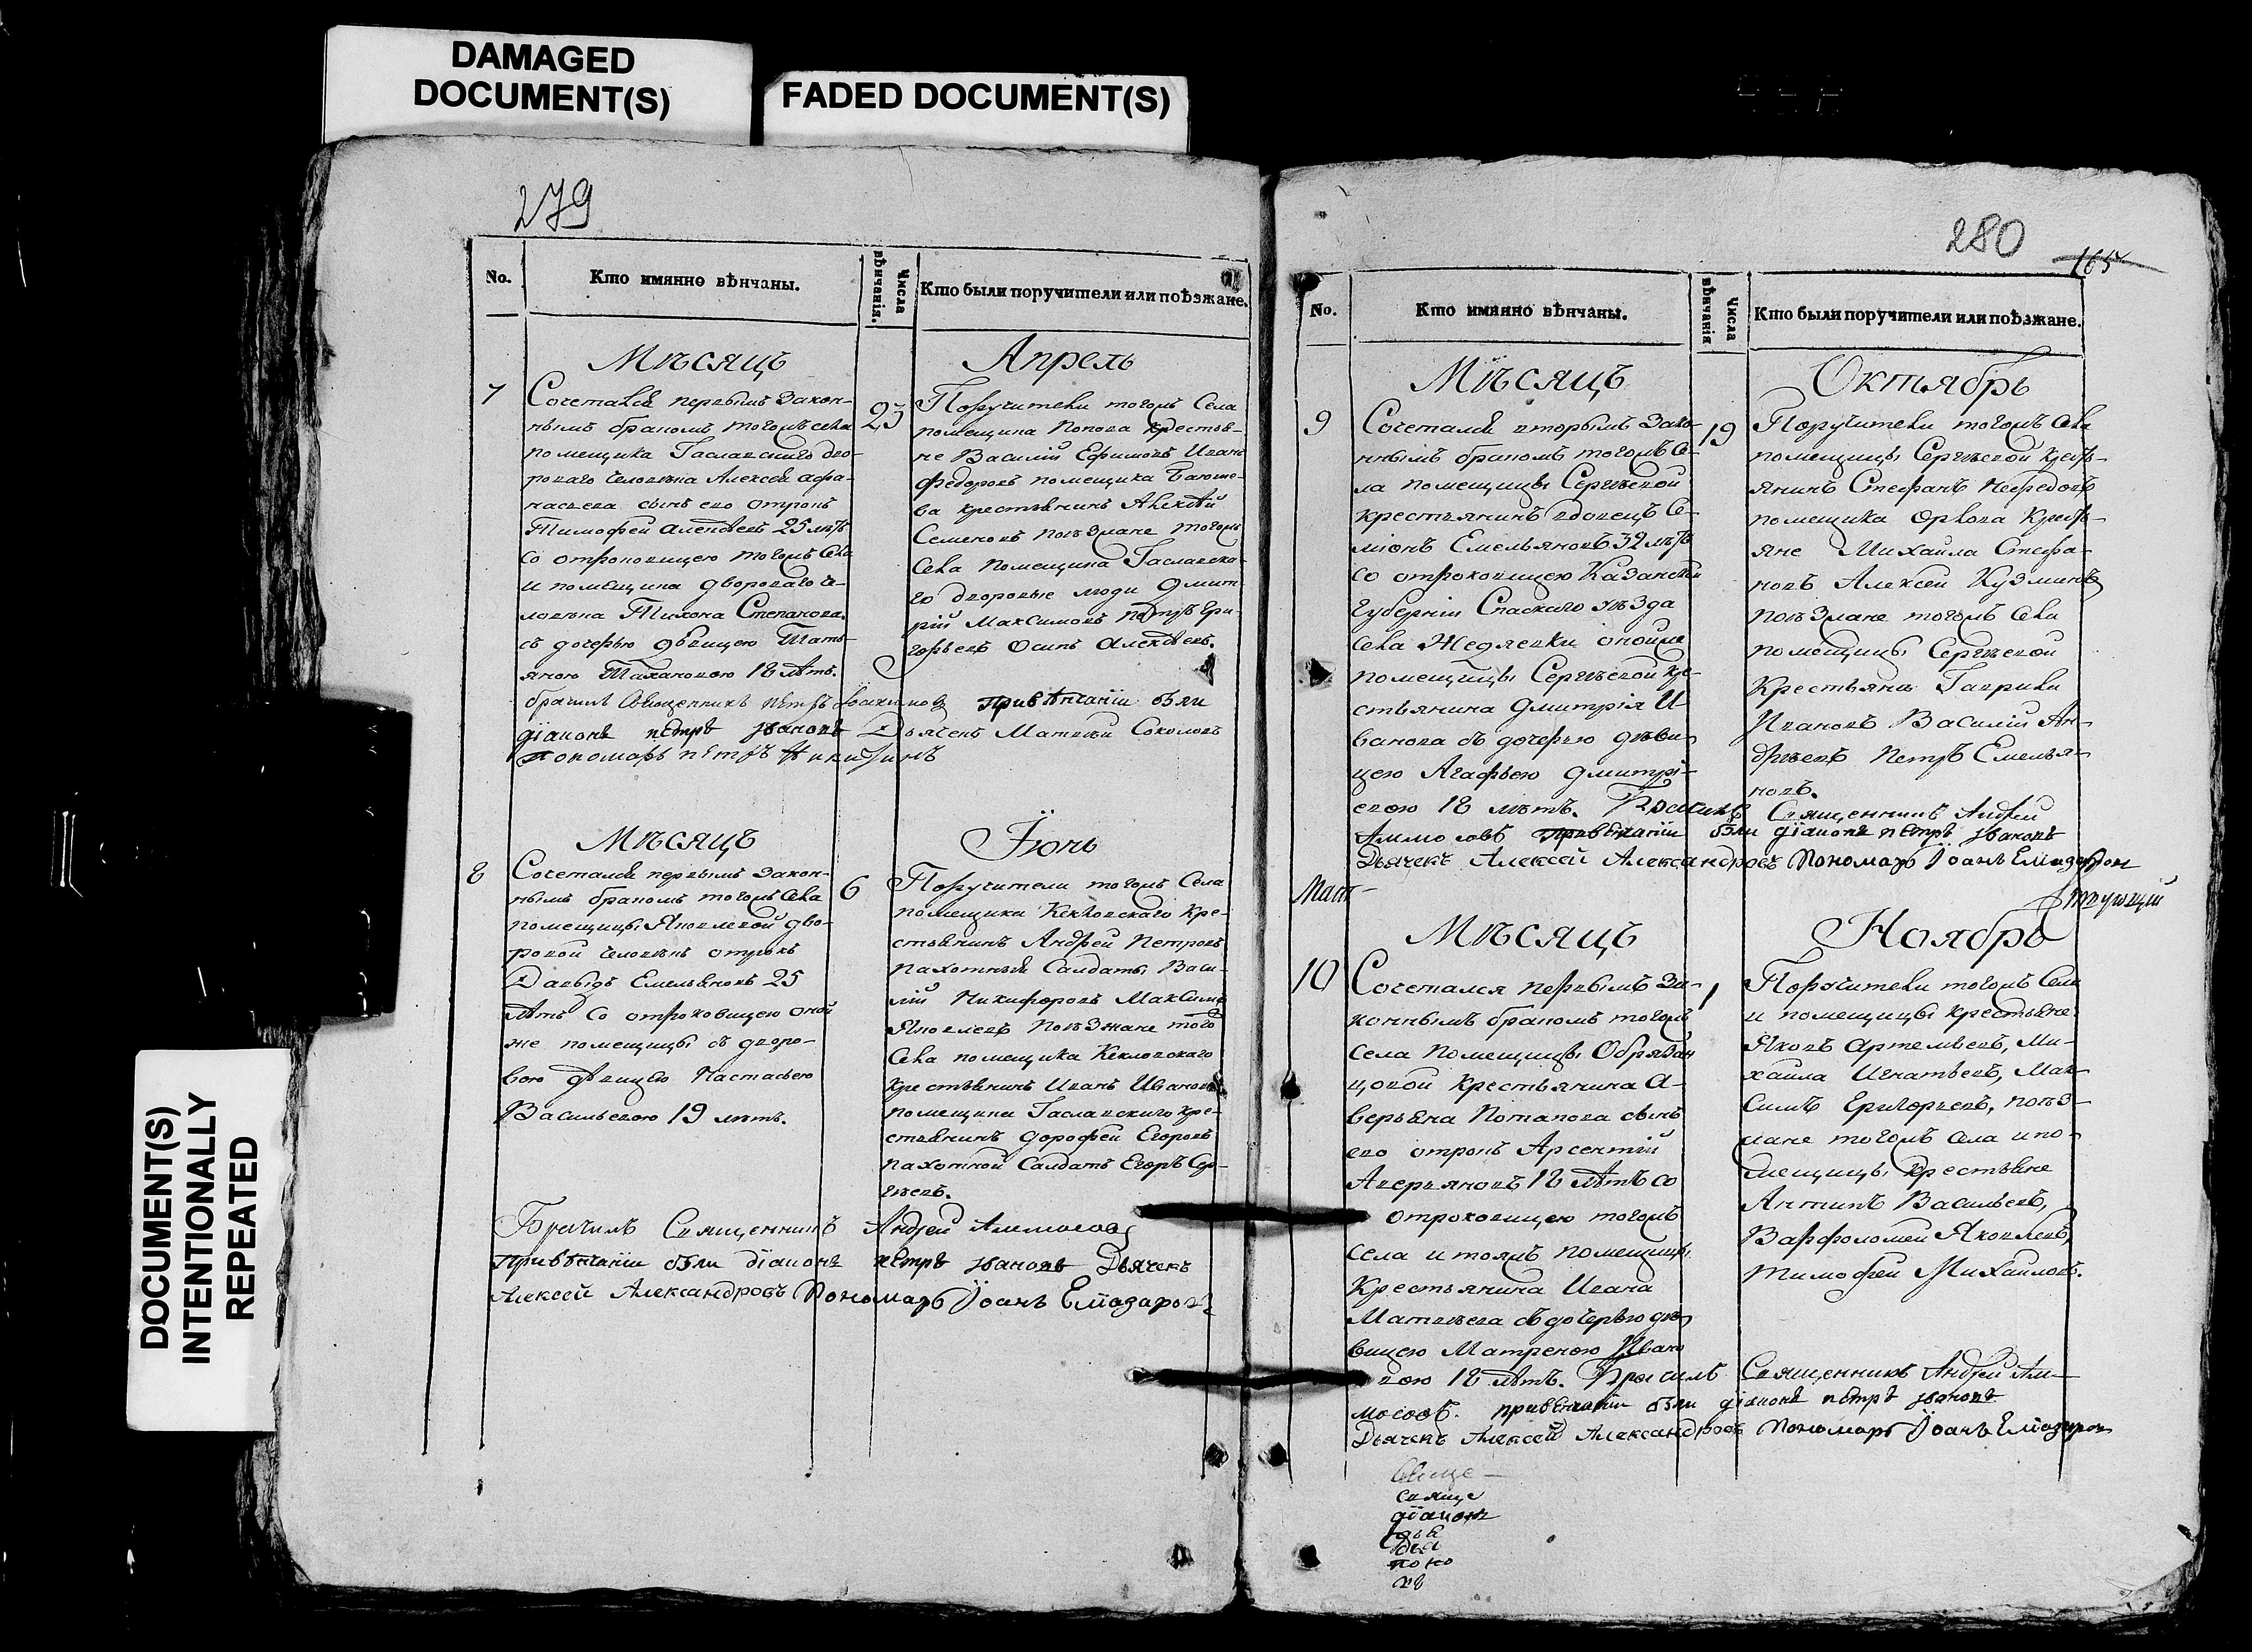 DAMAGED
DOCUMENT(S)
FADED DOCUMENT(S)
DOCUMENT(S)
INTENTIONALLY
REPEATED
279
No.
Кто имянно вѣнчаны.
Числа
вѣнчанія.
Кто были поручители или поѣзжане.
Мѣсяцъ
7
Сочетался первымъ закон-
нымъ бракомъ тогожъ села
помещика Гаславскаго дво-
роваго человека Алексея Афа-
насьева сынъ его отрокъ
Тимофей Алексѣевъ 25 лѣтъ
со отроковицею тогожъ села
и помещика двороваго че-
ловека Тихона Степанова
съ дочерью девицею Тать-
яною Тихановою 18 лѣтъ.
23
Апрель
Поручители тогожъ Села
помещика Попова крестья-
не Василий Ефимовъ Иванъ
Федоровъ помещика
крестьянинъ Алексѣй
Семеновъ поезжане тогожъ
Села помещика Гаславска-
го дворовые люди Дмит-
рій Максимовъ Петръ Гри-
горьевъ Осипъ Алексѣевъ.
Священникъ Петръ при вѣнчаніи были
діаконъ Петръ Ивановъ Дьячекъ Матвей Соколовъ
пономарь Петръ Никитинъ
Мѣсяцъ
8
Сочетался первымъ закон-
нымъ бракомъ тогожъ села
помещицы Яковлевой дво-
ровой человекъ отрокъ
Давыдъ Емельяновъ 25
лѣтъ со отроковицею оной
же помещицы съ дворо-
вою девицею Настасьею
Васильевою 19 лѣтъ.
6
Іюнь
Поручители тогожъ Села
помещика Кекловскаго кре-
стьянинъ Андрей Петровъ
пахотный Салдаты Васи-
лій Никифоровъ Максимъ
Яковлевъ поезжане того
Села помещика Кекловскаго
крестьянинъ Иванъ Ивановъ
помещика Гаславскаго кре-
стьянинъ Дорофей Егоровъ
пахотной Салдатъ Егоръ Сер-
гѣевъ.
Брачилъ Священникъ Андрей Аммосовъ
при вѣнчаніи были діаконъ Петръ Ивановъ Дьячекъ
Алексей Александровъ Пономарь Іоанъ
280
165
No.
Кто имянно вѣнчаны.
Числа
вѣнчанія
Кто были поручители или поѣзжане.
Мѣсяцъ
9
Сочетался вторымъ зако-
ннымъ бракомъ тогожъ Се-
ла помещицы Сергѣевой
крестьянинъ вдовецъ Се-
міонъ Емельяновъ 32 лѣтъ
со отроковицею Казанской
губерніи Спаскаго уѣзда
села Жедлевки оной же
помещицы Сергѣевой кре-
стьянина Дмитрія И-
ванова съ дочерью дѣви-
цею Агафьею Дмитрі-
евою 18 лѣтъ.
19
Октябрь
Поручители тогожъ Села
помещицы Сергѣевой кресть-
янинъ Стефанъ Нефедовъ
помещика Орлова кресть-
яне Михайла Стефа-
новъ Алексей Кузминъ
поезжане тогожъ Села
помещицы Сергѣевой
крестьяна Гаврила
Ивановъ Василій Ан-
дрѣевъ Петръ Емелья-
новъ.
Брачилъ Священникъ Андрей
Аммосовъ при вѣнчаніи были діаконъ Петръ Ивановъ
Дьячекъ Алексей Александровъ Пономарь Іоанъ
Мѣсяцъ
10
Сочетался первымъ за-
коннымъ бракомъ тогожъ
села помещицы Обрязан
цовой крестьянина А-
верьяна Потапова сынъ
его отрокъ Арсентій
Аверьяновъ 18 лѣтъ со
отроковицею тогожъ
села и тояжъ помещицы
крестьянина Ивана
Матвѣева съ дочерью дѣ-
вицею Матреною Ивано
вою 18 лѣтъ.
1
Ноябрь
Поручители тогожъ Села
и помещицы крестьяне
Яковъ Артемьевъ, Ми-
хайла Игнатьевъ, Мак-
симъ Григорьевъ, поез-
жане тогожъ села и по-
мещицы крестьяне
Антипъ Васильевъ,
Варфоломей Яковлевъ,
Тимофей Михайловъ.
Брачилъ Священникъ Андрей Ам-
мосовъ. при вѣнчаніи были діаконъ Петръ Ивановъ
Дьячекъ Алексей Александровъ Пономарь Іоанъ
свяще
діаконъ
дья
поно